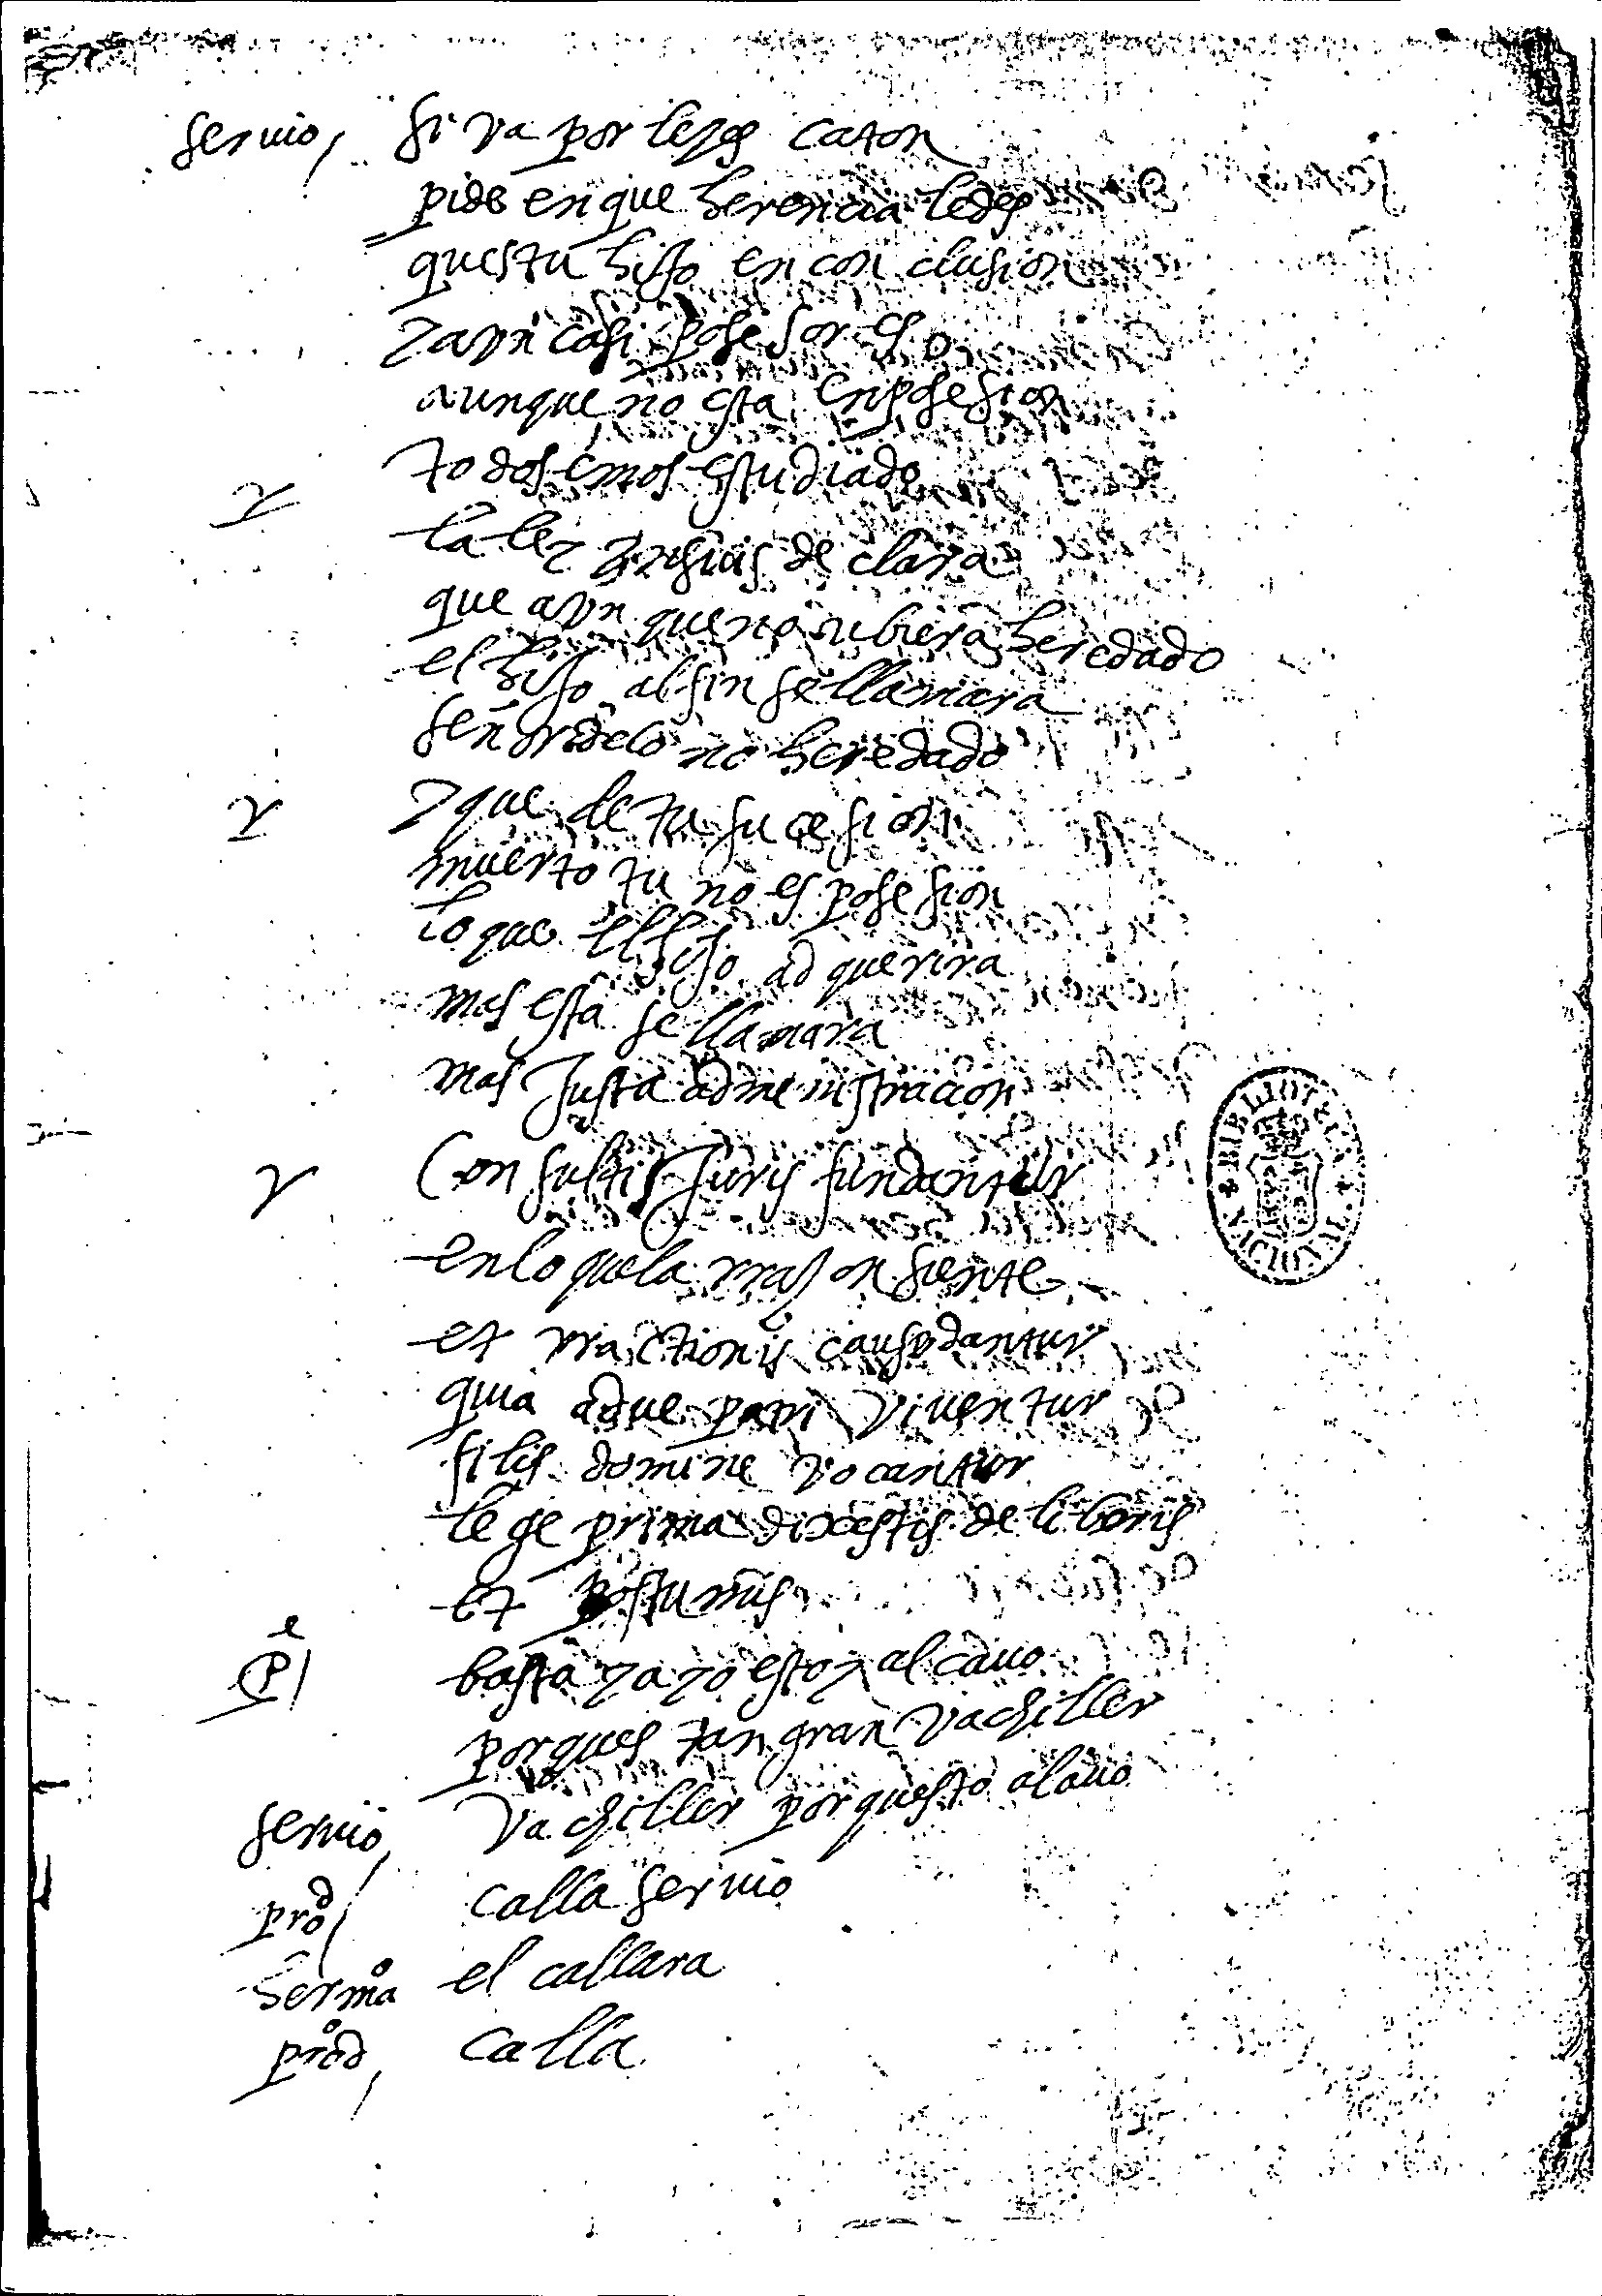 seruio, si va por leyes caton
pide en que herencia le des
questu hijo en conclusion
y aun casi posesor es
aunque no esta en posesion
todos emos estudiado
la ley y nos lo declara
que aun que no ubiera heredado
el hijo al fin se llamara
señor de lo no heredado
y que de tu sucesion
muerto tu no es posesion
lo que el hijo adquerira
mas esta se llamara
mas justa administracion
Consultis juris fundantur
en lo que la rrazon siente
et rractionis causa dantur
quia adue patri viuentur
filis domine vocantur
lege prima dixestis de liberis
et postumis
Pe/ basta ya yo estoy al cauo
porques tan gran vachiller
seruio, vachiller porquesto alauo
prod/ calla seruio
hermao el callara
prod, calla
BIBLIOTECA NACIONAL